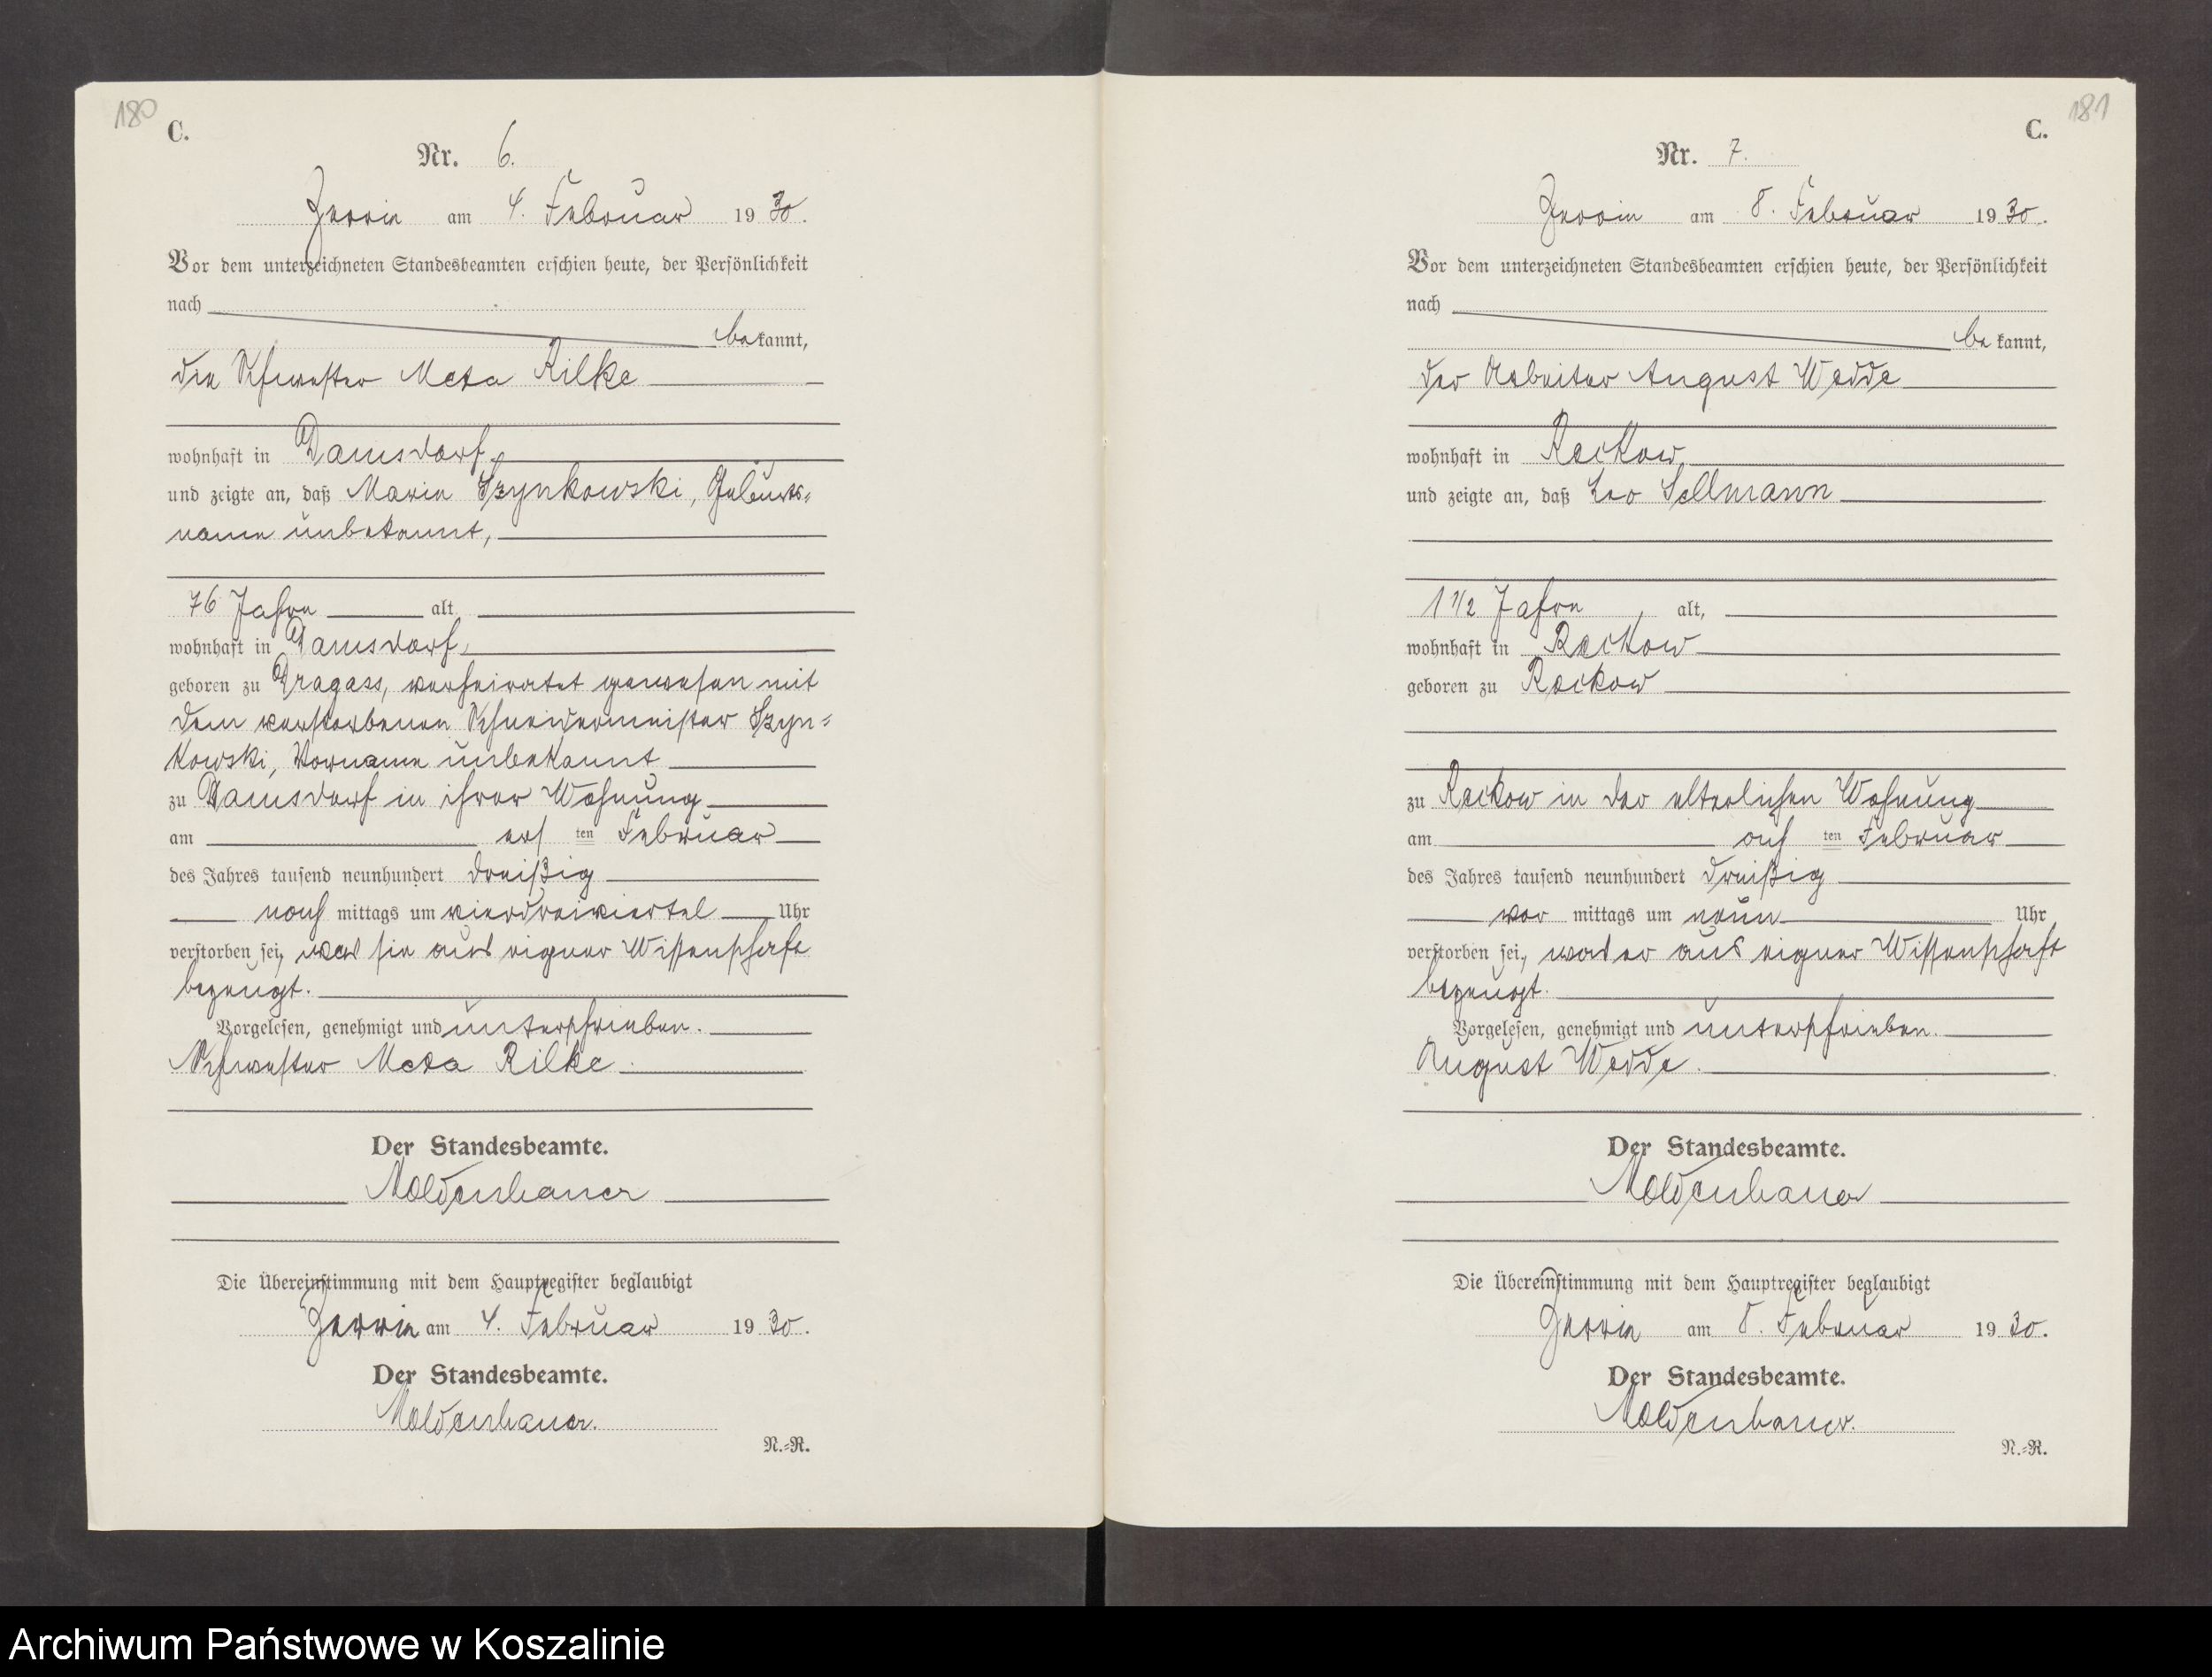 180
C.
Nr. 6.
Jerrin am 4. Februar 1930.
Vor dem unterzeichneten Standesbeamten erschien heute, der Persönlichkeit
nach
bekannt,
die Schwester Meta Rilke
wohnhaft in Damsdorf,
und zeigte an, daß Marie Szynkowski, Geburts-
name unbekannt,
76 Jahre alt,
wohnhaft in Damsdorf,
geboren zu Dragass, verheiratet gewesen mit
dem verstorbenen Schneidermeister Szyn-
kowski, Vorname unbekannt
zu Damsdorf in ihrer Wohnung
am ersten Februar
des Jahres tausend neunhundert dreißig
nachmittags um vierdreiviertel Uhr
verstorben sei, was sie aus eigner Wissenschaft
bezeugt.
Vorgelesen, genehmigt und unterschrieben.
Schwester Meta Rilke.
Der Standesbeamte.
Moldenhauer
Die Übereinstimmung mit dem Hauptregister beglaubigt
Jerrin am 4. Februar 1930.
Der Standesbeamte.
Moldenhauer.
N.-R.
181
C.
Nr. 7.
Jerrin am 8. Februar 1930.
Vor dem unterzeichneten Standesbeamten erschien heute, der Persönlichkeit
nach
bekannt,
der Arbeiter August Wedde
wohnhaft in Reckow,
und zeigte an, daß Leo Sellmann
1 1/2 Jahre, alt,
wohnhaft in Reckow
geboren zu Reckow
zu Reckow in der elterlichen Wohnung
am achten Februar
des Jahres tausend neunhundert dreißig
vormittags um neun Uhr
verstorben sei, was er aus eigner Wissenschaft
bezeugt.
Vorgelesen, genehmigt und unterschrieben.
August Wedde.
Der Standesbeamte.
Moldenhauer
Die Übereinstimmung mit dem Hauptregister beglaubigt
Jerrin am 8. Februar 1930.
Der Standesbeamte.
Moldenhauer.
N.-R.
Archiwum Państwowe w Koszalinie